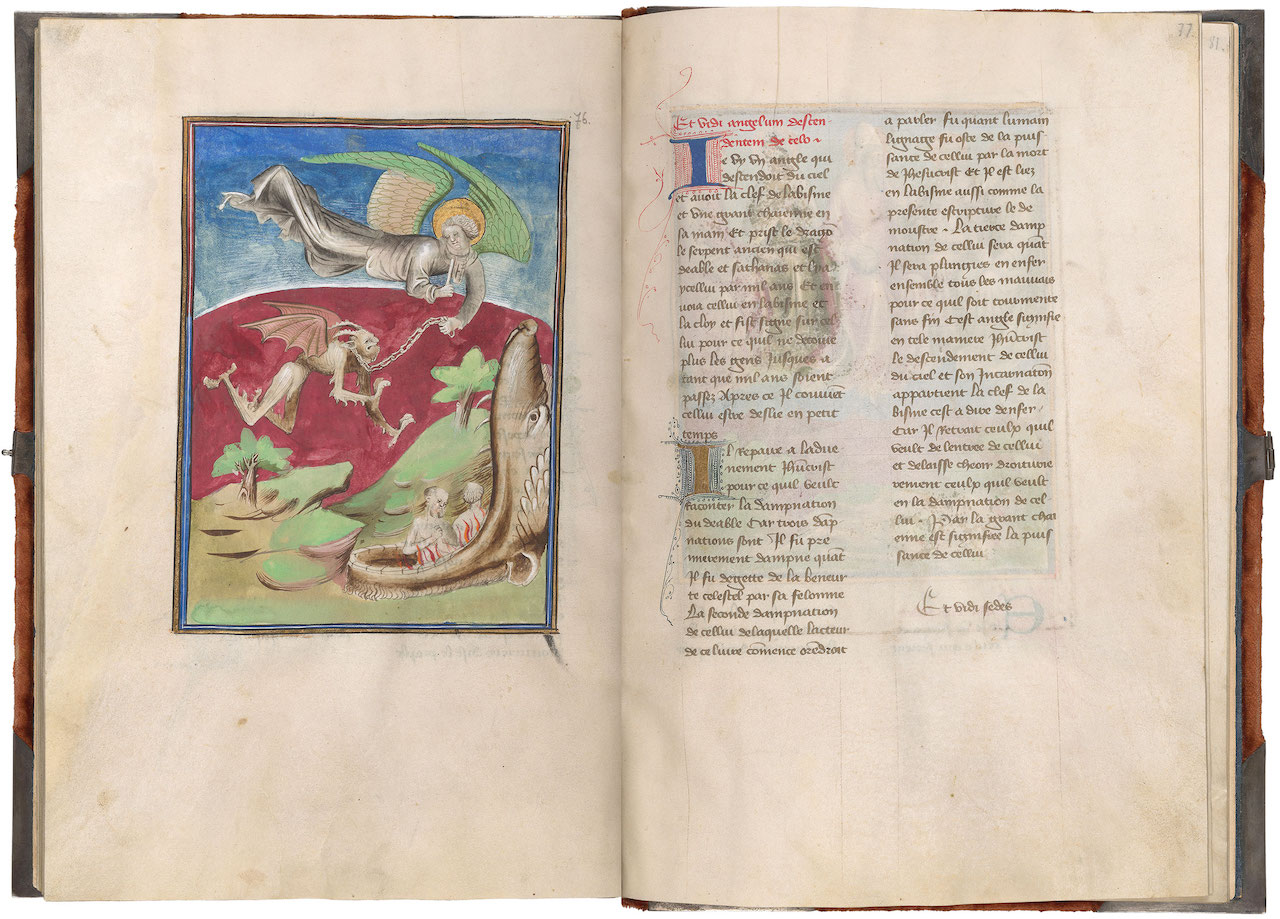 76.
77.
81.
Et vidi angelum descen-
dentem de celo
Ie vy vn angle qui
descendoit du ciel
et auoit la clef de labisme
et vne grant chaienne en
sa main Et prist le drago
le serpent ancien qui est
deable et sathanas et
ycellui par mil ans Et en
uoia cellui en labisme et
la cloy et fist signe sur cel
lui pour ce quil ne decoiue
plus les gens Jusques a
tant que mil ans soient
passez Apres ce Il conuiet
cellui estre deslie en petit
temps
Il repaire a ladue
nement Jhucrist
pour ce quil veult
raconter la dampnation
du deable Car trois dap
nations sont Il fu pre
mierement dampne quat
Il fu degette de la beneur
te celestel par sa felonnie
La seconde dampnation
de cellui de laquelle lacteur
de ce liure comence orendroit
a parler fu quant lumain
lignage fu oste de la puis
sance de cellui par la mort
de Jhesucrist Et Il est liez
en labisme aussi comme la
presente escripture le de
moustre La tierce damp
nation de cellui sera quat
Il sera plungies en enfer
ensemble tous les mauuais
pour ce quil soit tourmente
sans fin Cest angle signifie
en tele maniere Jhucrist
le descendement de cellui
du ciel et son Incarnaton
appartient la clef de la
bisme cest a dire denfer
Car Il retrait ceulx quil
veult de lentree de cellui
et delaisse cheoir droiturie
rement ceulx quil veult
en la dampnation de cel
lui Par la grant chai
enne est signifiee la puis
sance de cellui
Et vidi sedes